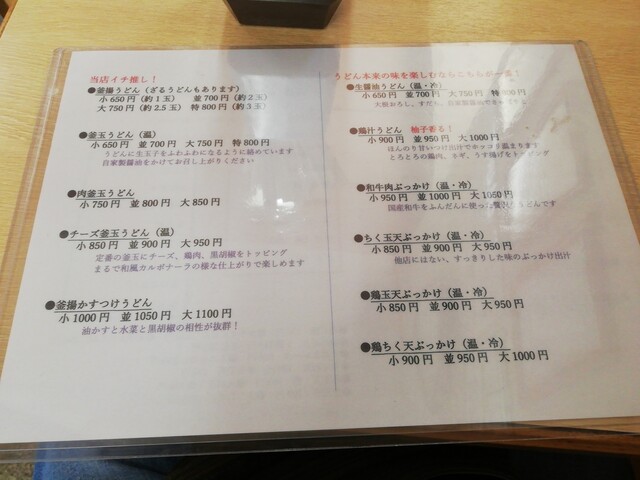 当店イチ推し！
●釜揚うどん（ざるうどんもあります）
小650円（約1玉） 並700円（約2玉）
大750円（約2.5玉） 特800円（約3玉）
●釜玉うどん（温）
小650円 並700円 大750円 特800円
うどんに生玉子をふわふわになるように絡めています
自家製醤油をかけてお召し上がりください
●肉釜玉うどん
小750円 並800円 大850円
●チーズ釜玉うどん（温）
小850円 並900円 大950円
定番の釜玉にチーズ、鶏肉、黒胡椒をトッピング
まるで和風カルボナーラの様な仕上がりで楽しめます
●釜揚かすつけうどん
小1000円 並1050円 大1100円
油かすと水菜と黒胡椒の相性が抜群！
うどん本来の味を楽しむならこちらが一番！
●生醤油うどん（温・冷）
小650円 並700円 大750円 特800円
大根おろし、すだち、自家製醤油で
●鶏汁うどん 柚子香る！
小900円 並950円 大1000円
ほんのり甘いつけ出汁でホッコリ温まります
とろとろの鶏肉、ネギ、うす揚げをトッピング
●和牛肉ぶっかけ（温・冷）
小950円 並1000円 大1050円
国産和牛をふんだんに使った贅沢なうどんです
●ちく玉天ぶっかけ（温・冷）
小850円 並900円 大950円
他店にはない、すっきりした味のぶっかけ出汁
●鶏玉天ぶっかけ（温・冷）
小850円 並900円 大950円
●鶏ちく天ぶっかけ（温・冷）
小900円 並950円 大1000円